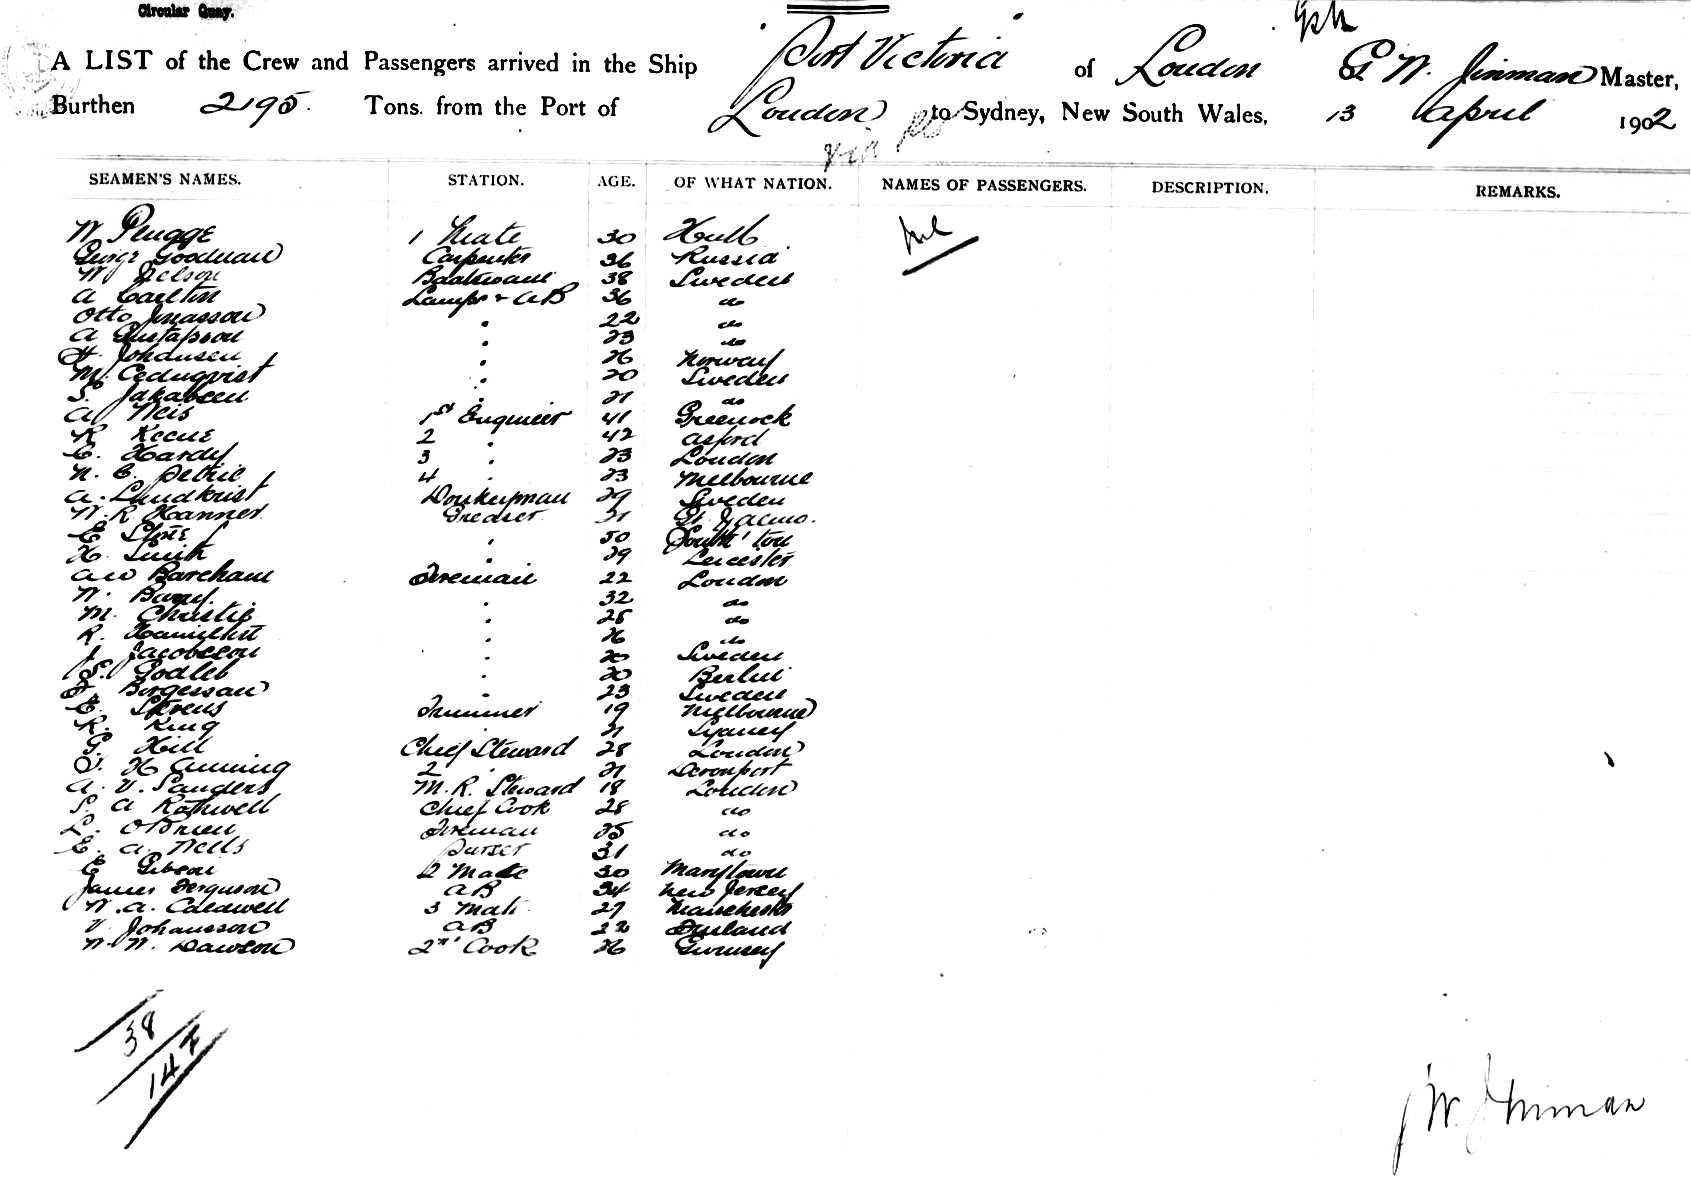 Circular Quay.
A LIST of the Crew and Passengers arrived in the Ship Port Victoria of London G W. Jinman Master,
Burthen 2195. Tons. from the Port of London to Sydney, New South Wales, 13 April 1902
via
SEAMEN'S NAMES. STATION. AGE. OF WHAT NATION. NAMES OF PASSENGERS. DESCRIPTION. REMARKS.
W Plugge 1 Mate 30 Hull Nil
George Goodman Carpenter 36 Russia
W Nelson Boatswain 38 Sweden
A Carlton Lamps & AB 36 do
Otto Jonasson " 22 do
A Gustafsson " 23 do
H. Johansen " 26 Norway
M. Cednqvist " 20 Sweden
S. Jakobsen " 21 do
A Weis 1st Engineer 41 Greenock
R Keene 2 " 42
C. Hardy 3 " 23 London
N. C. Petrie 4 " 23 Melbourne
A. Lundkvist Donkeyman 29 Sweden
W. R. Hanner Greaser 31
E Stone " 50 South'ton
H. Smith " 29 Leicester
A W Barcham Fireman 22 London
W. " 32 do
M. Christie " 25 do
R. " 26 do
J Jacobsson " 20 Sweden
S. Godleb " 20 Berlin
Borgessan " 23 Sweden
E. Trimmer 19 Melbourne
R. King 21 Sydney
G. Hill Chief Steward 28 London
H Cumming 2 " 21 Devonport
A. V. Sanders M. R. Steward 18 London
S. A Rothwell Chief Cook 28 do
L. O'Brien Fireman 25 do
E. A. Wells Purser 31 do
E Gibson 2 Mate 30 Marytown
James Ferguson AB 34 New Jersey
W. A. Caldwell 3 Mate 27 Manchester
V. Johansson AB 22 Finland
W. W. Dawson 2nd Cook 26 Guernsey
38
14
W. Jinman